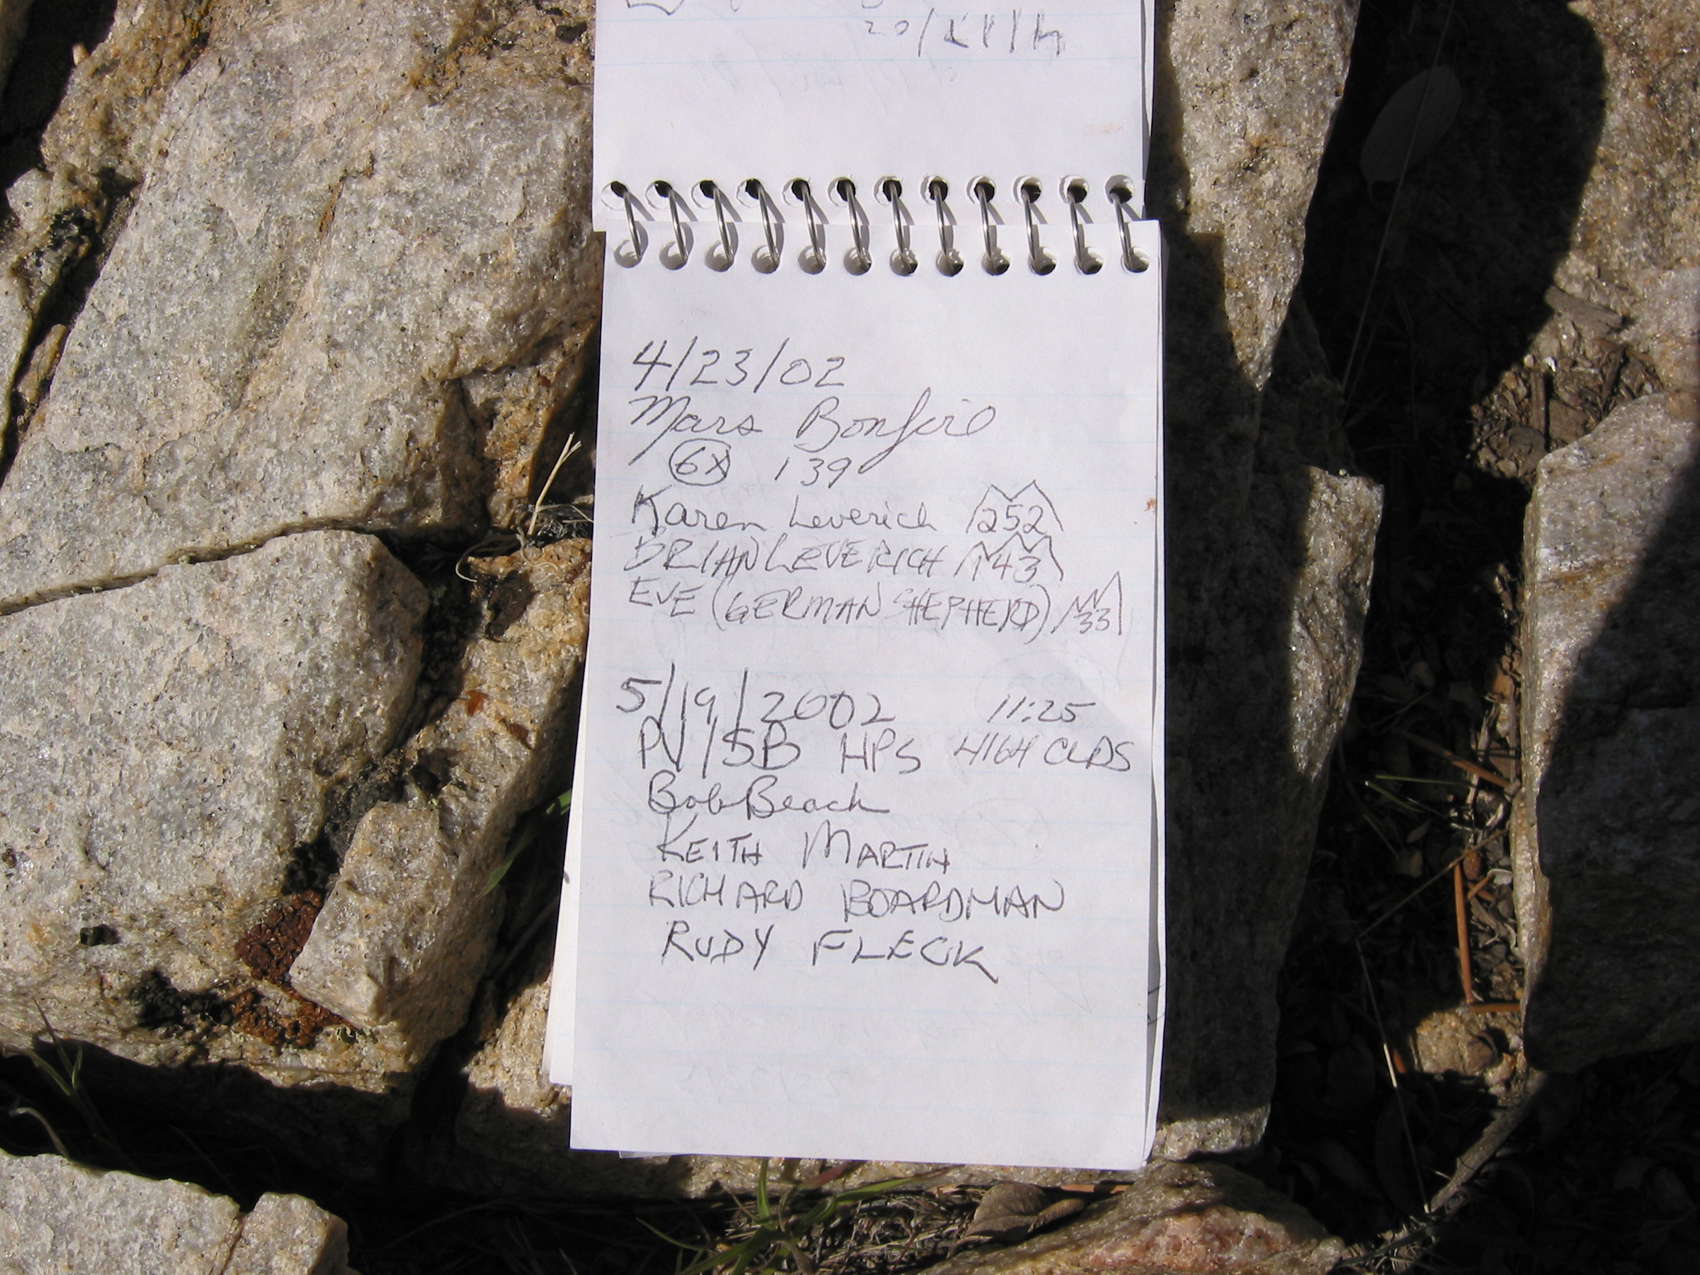 4/23/02
Mars Bonfire
6X 139
Karen Leverich 252
BRIAN LEVERICH 143
EVE (GERMAN SHEPHERD) 33
5/19/2002 11:25
PV/SB HPS HIGH CLDS
Bob Beach
KEITH MARTIN
RICHARD BOARDMAN
RUDY FLECK